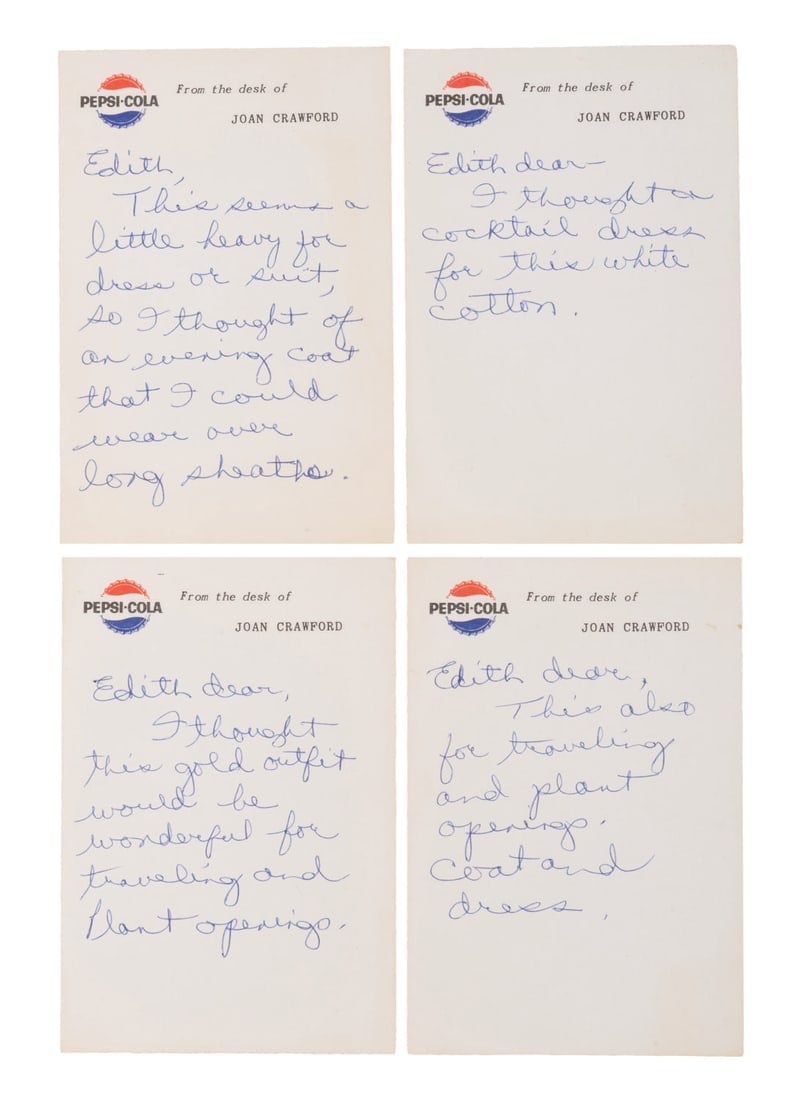 PEPSI·COLA
From the desk of
JOAN CRAWFORD
Edith,
This seems a
little heavy for
dress or suit,
so I thought of
an evening coat
that I could
wear over
long sheaths.
PEPSI·COLA
From the desk of
JOAN CRAWFORD
Edith dear—
I thought a
cocktail dress
for this white
cotton.
PEPSI·COLA
From the desk of
JOAN CRAWFORD
Edith dear,
I thought
this gold outfit
would be
wonderful for
traveling and
Plant openings.
PEPSI·COLA
From the desk of
JOAN CRAWFORD
Edith dear,
This also
for traveling
and plant
openings.
Coat and
dress.